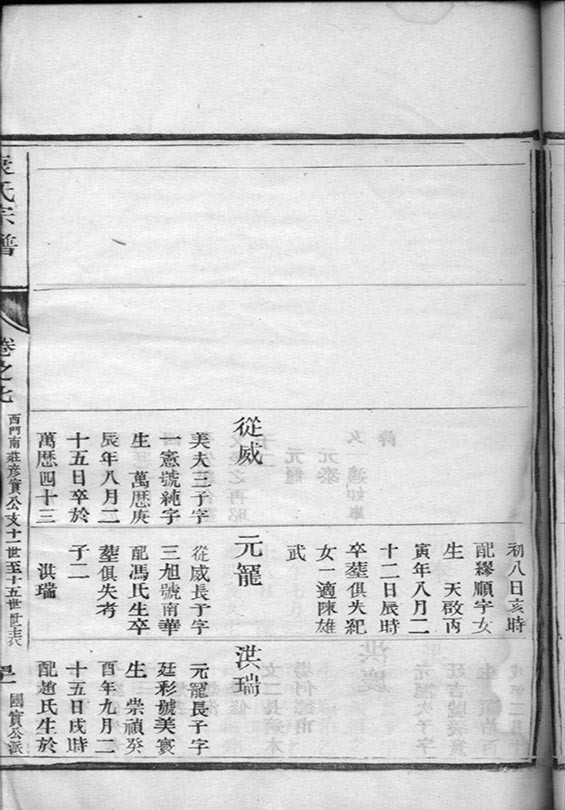 從威
美夫三子字
一憲號純字
生 萬歷庚
辰年八月二
十五日卒於
萬歷四十三
初八日亥時
配繆順字女
生 天啟丙
寅年八月二
十二日辰時
卒塟俱失紀
女一適陳雄
武
元寵
從威長子字
三旭號南華
配馮氏生卒
塟俱失考
子二
洪瑞
洪瑞
元寵長子字
廷彩號美寰
生 崇禎癸
酉年九月二
十五日戌時
配趙氏生於
氏宗譜
卷之七
西門南莊彥實公支十一世至十五世世表
國寶公派